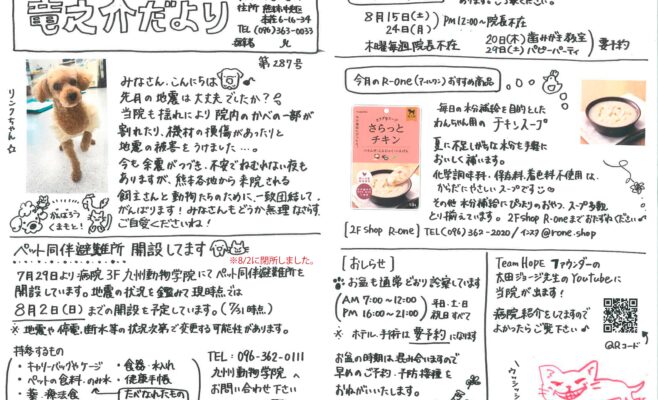 竜之介だより
住所 熊本市中央区
本荘6-16-34
TEL (096) 363-0033
第287号
リンクちゃん☆
みなさん、こんにちは
先月の地震は大丈夫でしたか？
当院も揺れにより院内のかべの一部が
割れたり、機材の損傷があったりと
地震の被害をうけました…。
今も余震がつづき、不安でねむれない夜も
ありますが、熊本各地から来院される
飼主さんと動物たちのために、一致団結して
がんばります！みなさんもどうか無理なさらず
ご自愛くださいね！
がんばろう
くまもと！
ペット同伴避難所 開設してます
※8/2に閉所しました。
7月29日より病院3F九州動物学院にてペット同伴避難所を
開設しています。地震の状況を鑑みて現時点では
8月2日(日)までの開設を予定しています。(7/31時点)
※地震や停電、断水等の状況次第で変更する可能性があります。
持参するもの
・キャリーバッグやケージ ・食器・水入れ
・ペットの食料・のみ水 ・健康手帳
・薬・療法食 ・たべなれたもの
TEL：096-362-0111
九州動物学院へ
お問い合わせ下さい
8月15日(土)
24日(月)
PM12:00～院長不在
木曜毎週院長不在
20日(木)歯みがき教室
29日(土)パピーパーティ
要予約
今月のR-one(アールワン)おすすめ商品
さらっと
チキン
毎日の水分補給を目的とした
わんちゃん用のチキンスープ
夏に不足しがちな水分を手軽に
おいしく補います。
化学調味料・保存料・着色料不使用は、
からだにやさしいスープです
その他 水分補給にぴったりのおやつ、スープ多数
とり揃えています。2FShop R-oneまでおたずねください♪
[2FShop R-one] TEL(096)362-2020/インスタ@rone.shop
[おしらせ]
・お盆も通常どおり診察しています
AM 9:00～12:00
PM 16:00～21:00
平日・土・日
祝日すべて
※ホテル、手術は要予約になります
お盆の時期は混み合いますので
早めのご予約・予防接種を
おねがいいたします。
Team HOPE ファウンダーの
太田ジョージ先生のYouTubeに
当院が出ます！
病院紹介をしてますので
よかったらご覧下さい♪
QRコード
ウッシッシ